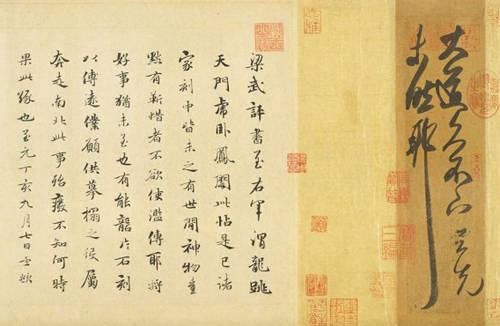 大道久不下與先
未然耶
梁武評書至右軍謂龍跳
天門虎臥鳳閣此帖是已諸
家刻中皆未之有世間神物豈
默有靳惜者不欲使濫傳耶將
好事猶未至也有能寵以石刻
以傳遠僕願供摹搨之役屬
奔走南北此事殆廢不知何時
果此緣也至元丁亥九月七日孟頫